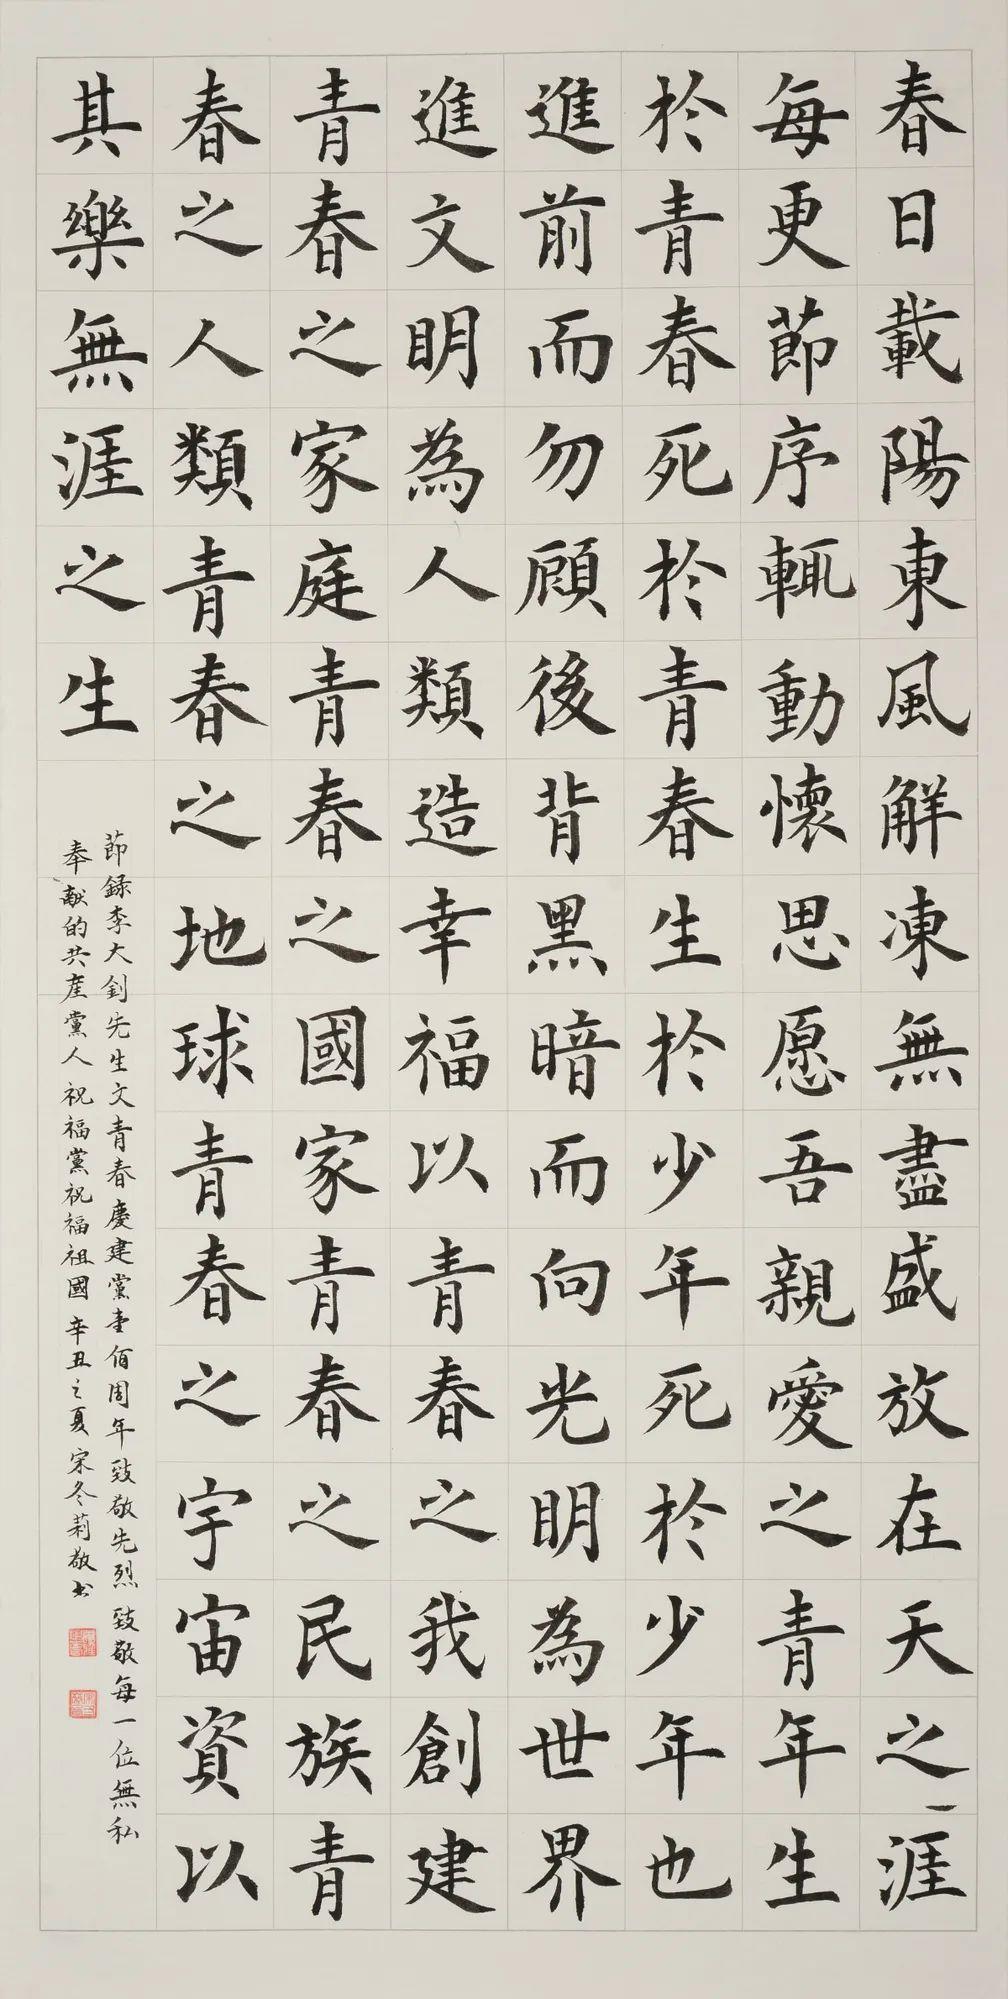 春日載陽東風解凍無盡盛放在天之涯
每更節序輒動懷思愿吾親愛之青年生
於青春死於青春生於少年死於少年也
進前而勿顧後背黑暗而向光明為世界
進文明為人類造幸福以青春之我創建
青春之家庭青春之國家青春之民族青
春之人類青春之地球青春之宇宙資以
其樂無涯之生
節録李大釗先生文青春慶建黨壹佰周年致敬先烈致敬每一位無私
奉献的共産黨人祝福黨祝福祖國辛丑之夏宋冬莉敬书